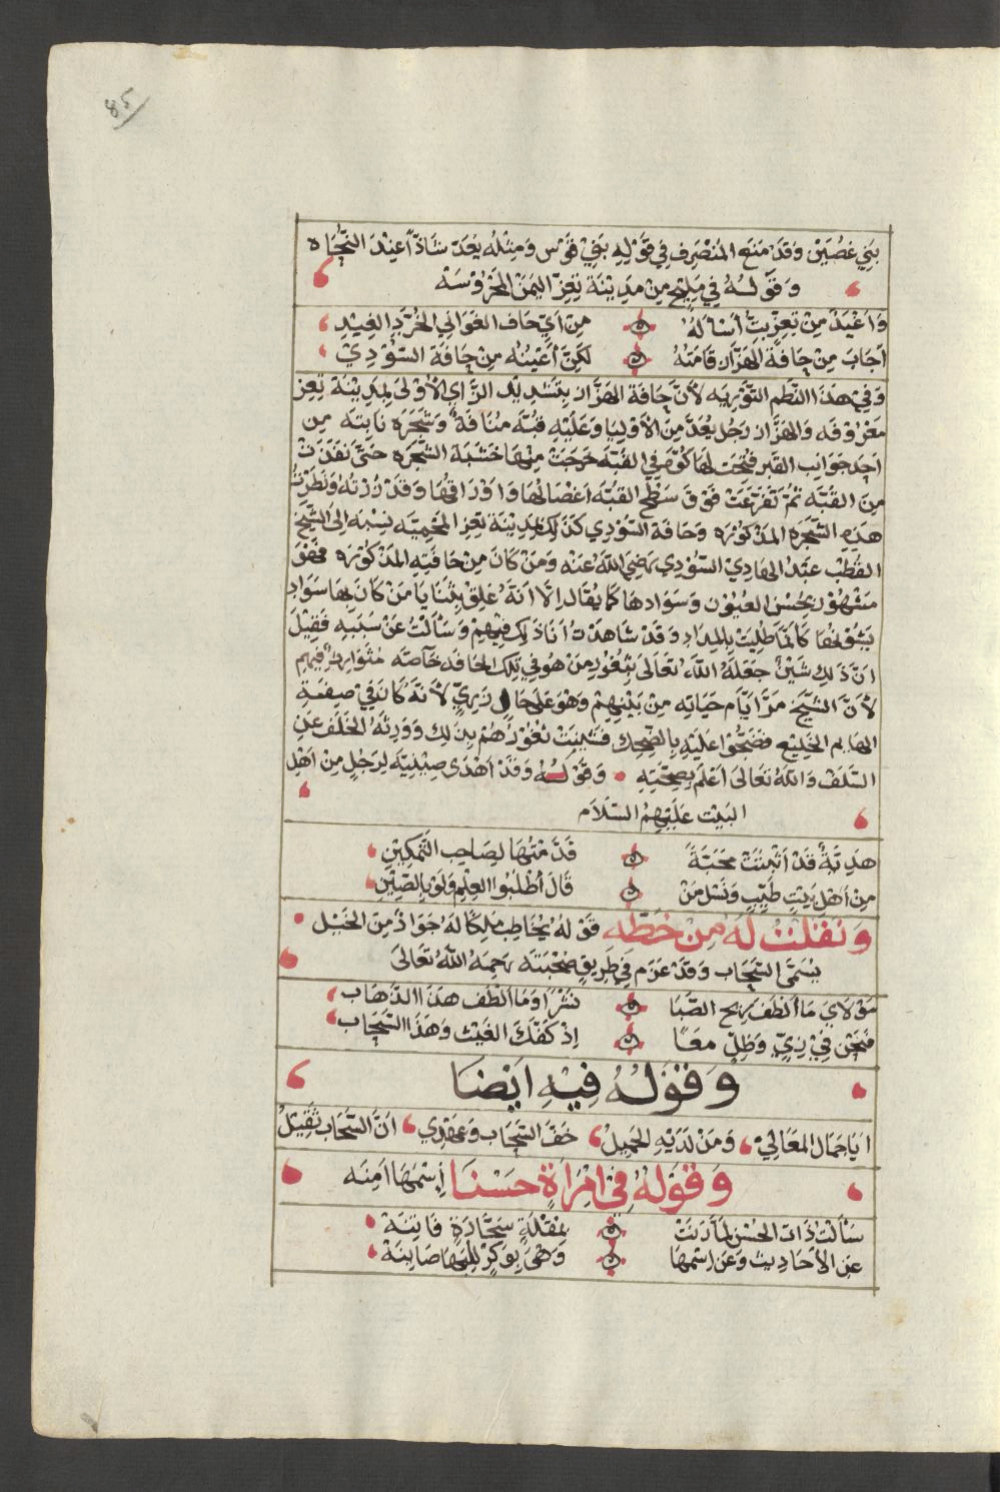 85
بَنِي غُصَيْن وَقَدْ مَنَعَ المُنْصَرِف فِي قَوْلِهِ بَغَيْ قَوْس وَمِثْلُه يُعَدّ شَاذّاً عِنْدَ النُّحَاه
وَقَوْلُهُ فِي مَلِيْحٍ مِن مَدِيْنَة تَعِزّ اليَمَن المَحْرُوْسَة
وَاغْيَدْ مِنْ تَعِزّ بِتُّ أَسْأَلُهُ مِنْ أَيِّ حَاف الغَوَانِي الخُرَّدِ الغِيْدِ
أَجَابَ مِنْ حَافَةِ الهَزَّازِ قَامَتُهُ لَكِنَّ أَعْيُنَه مِنْ حَافَة السُّوْدِيْ
وَفِي هَذَا النَّظْم التَّوْرِيَه لأَنَّ حَافَة الهَزَّاز بِتَشْدِيْد الزَّايِ الأُوْلَى لِمَدِيْنَة تَعِز
مَعْرُوْفَه وَالهَزَّاز رَجُل يُعَدّ مِنَ الأَوْلِيَا وَعَلَيْهِ قُبَّة مُنَافَةٌ وَشَجَرَه نَابِتَه مِن
اَحَد جَوَانِب القَبْر فُتِحَت لَهَا كُوَّه فِي القُبَّة خَرَجَتْ مِنْهَا خَشَبَة الشَّجَرَه حَتَّى نَفَذَتْ
مِنَ القُبَّة ثُمَّ تَفَرَّعَتْ فَوْقَ سَطْحِ القُبَّة اَغْصَانُهَا وَاَوْرَاقُهَا وَقَدْ زُرْتُهُ وَنَظَرْتُ
هَذِهِ الشَّجَرَه المَذْكُوْرَه وَحَافَة السُّوْدِي كَذَلِكَ لِمَدِيْنَة تَعِز المَحْمِيَّه نِسْبَه اِلَى الشَّيْخ
القُطْب عَبْدُ الهَادِيْ السُّوْدِي رَضِيَ اللَّهُ عَنْهُ وَمَنْ كَانَ مِنْ حَافَتِهِ المَذْكُوْرَه فَهُوَ
مَشْهُوْر بِحُسْنِ العُيُوْنِ وَسَوَادِهَا كَمَا يُقَال اِلَّا اَنَّهُ عَلِقَ بِثَنَايَا مَنْ كَانَ بِهَا سَوَاد
كَأَنَّمَا طُلِيَتْ بِالمِدَادِ وَقَدْ شَاهَدْتُ اَنَا ذَلِكَ فِيْهِمْ وَسَأَلْتُ عَنْ سَبَبِهِ فَقِيْلَ
اِنَّ ذَلِكَ شَيْنٌ جَعَلَهُ اللَّه تَعَالَى بِثُغُوْرِ مِنْ هُو فِي تِلْكَ الحَافَه خَآصّه مُتَوَارِثٌ فِيْهِم
لأَنَّ الشَّيْخ مَرَّ اَيَّام حَيَاتِه مِنْ بَيْنِهِمْ وَهُوَ عَلَى حَال زَرِيّ لأَنَّه كَانَ فِيْ صِفَةِ
الهَايِم الخَلِيْع فَضَجُّوا عَلَيْهِ بِالضَّحِكِ فَشِيْنَتْ ثُغُوْرُهُمْ بِذَلِكَ وَوَرِثَهُ الخَلَف عَنِ
السَّلَفْ وَاللَّهُ تَعَالَى اَعْلَم بِصِحَّتِهِ وَقَوْلُهُ وَقَدْ اَهْدَى صِيْنِيَّه لِرَجُلٍ مِنْ اَهْلِ
البَيْت عَلَيْهِمُ السَّلاَم
هَدِيَّةٌ قَدْ أَثْبَتَتْ مَحَبَّةً قَدَّمْتُهَا لِصَاحِبِ التَّمْكِيْنِ
مِنْ اَهْلِ بَيْتٍ طَيِّبٍ وَنَسْل مَنْ قَالَ اُطْلُبُوا العِلْمَ وَلَوْ بِالصِّيْنِ
وَنَقَلْتُ لَهُ مِنْ خَطِّه قَوْلهُ يُخَاطِب مَلِكًا لَهُ جَوَادٌ مِنَ الخَيْل
يُسَمَّى السَّحَاب وَقَدْ عَزَم فِي طَرِيقٍ صُحْبَتَه رَحِمَهُ اللَّهُ تَعَالَى
مَوْلاَيَ مَا ألْطَف رِيْح الصَّبَا نَشْرًا وَمَا ألْطَف هَذَا الذَّهَاب
فَنَحْنُ فِيْ رِيٍّ وَظِلٍّ معًا إِذْ كَفُّكَ الغَيْث وَهَذَا السَّحَاب
وَقَوْلُهُ فِيْهِ اَيْضًا
اَيَا جَمَال المَعَالِيْ وَمَنْ لَدَيْهِ الجَمِيْلُ خَفَّ السَّحَاب وَعَهْدِي اَنَّ السَّحَاب ثَقِيْلُ
وَقَوْلُهُ فِي امْرَأَةٍ حَسْنَا إِسْمُهَا اَمِنَه
سَأَلْتُ ذَاتَ الحُسْن لَمَّا رَنَتْ بِمُقْلَةٍ سَحَّارَةٍ فَاتِنَه
عَنِ الأَحَادِيث وَعَن اِسْمِهَا وَهْيَ